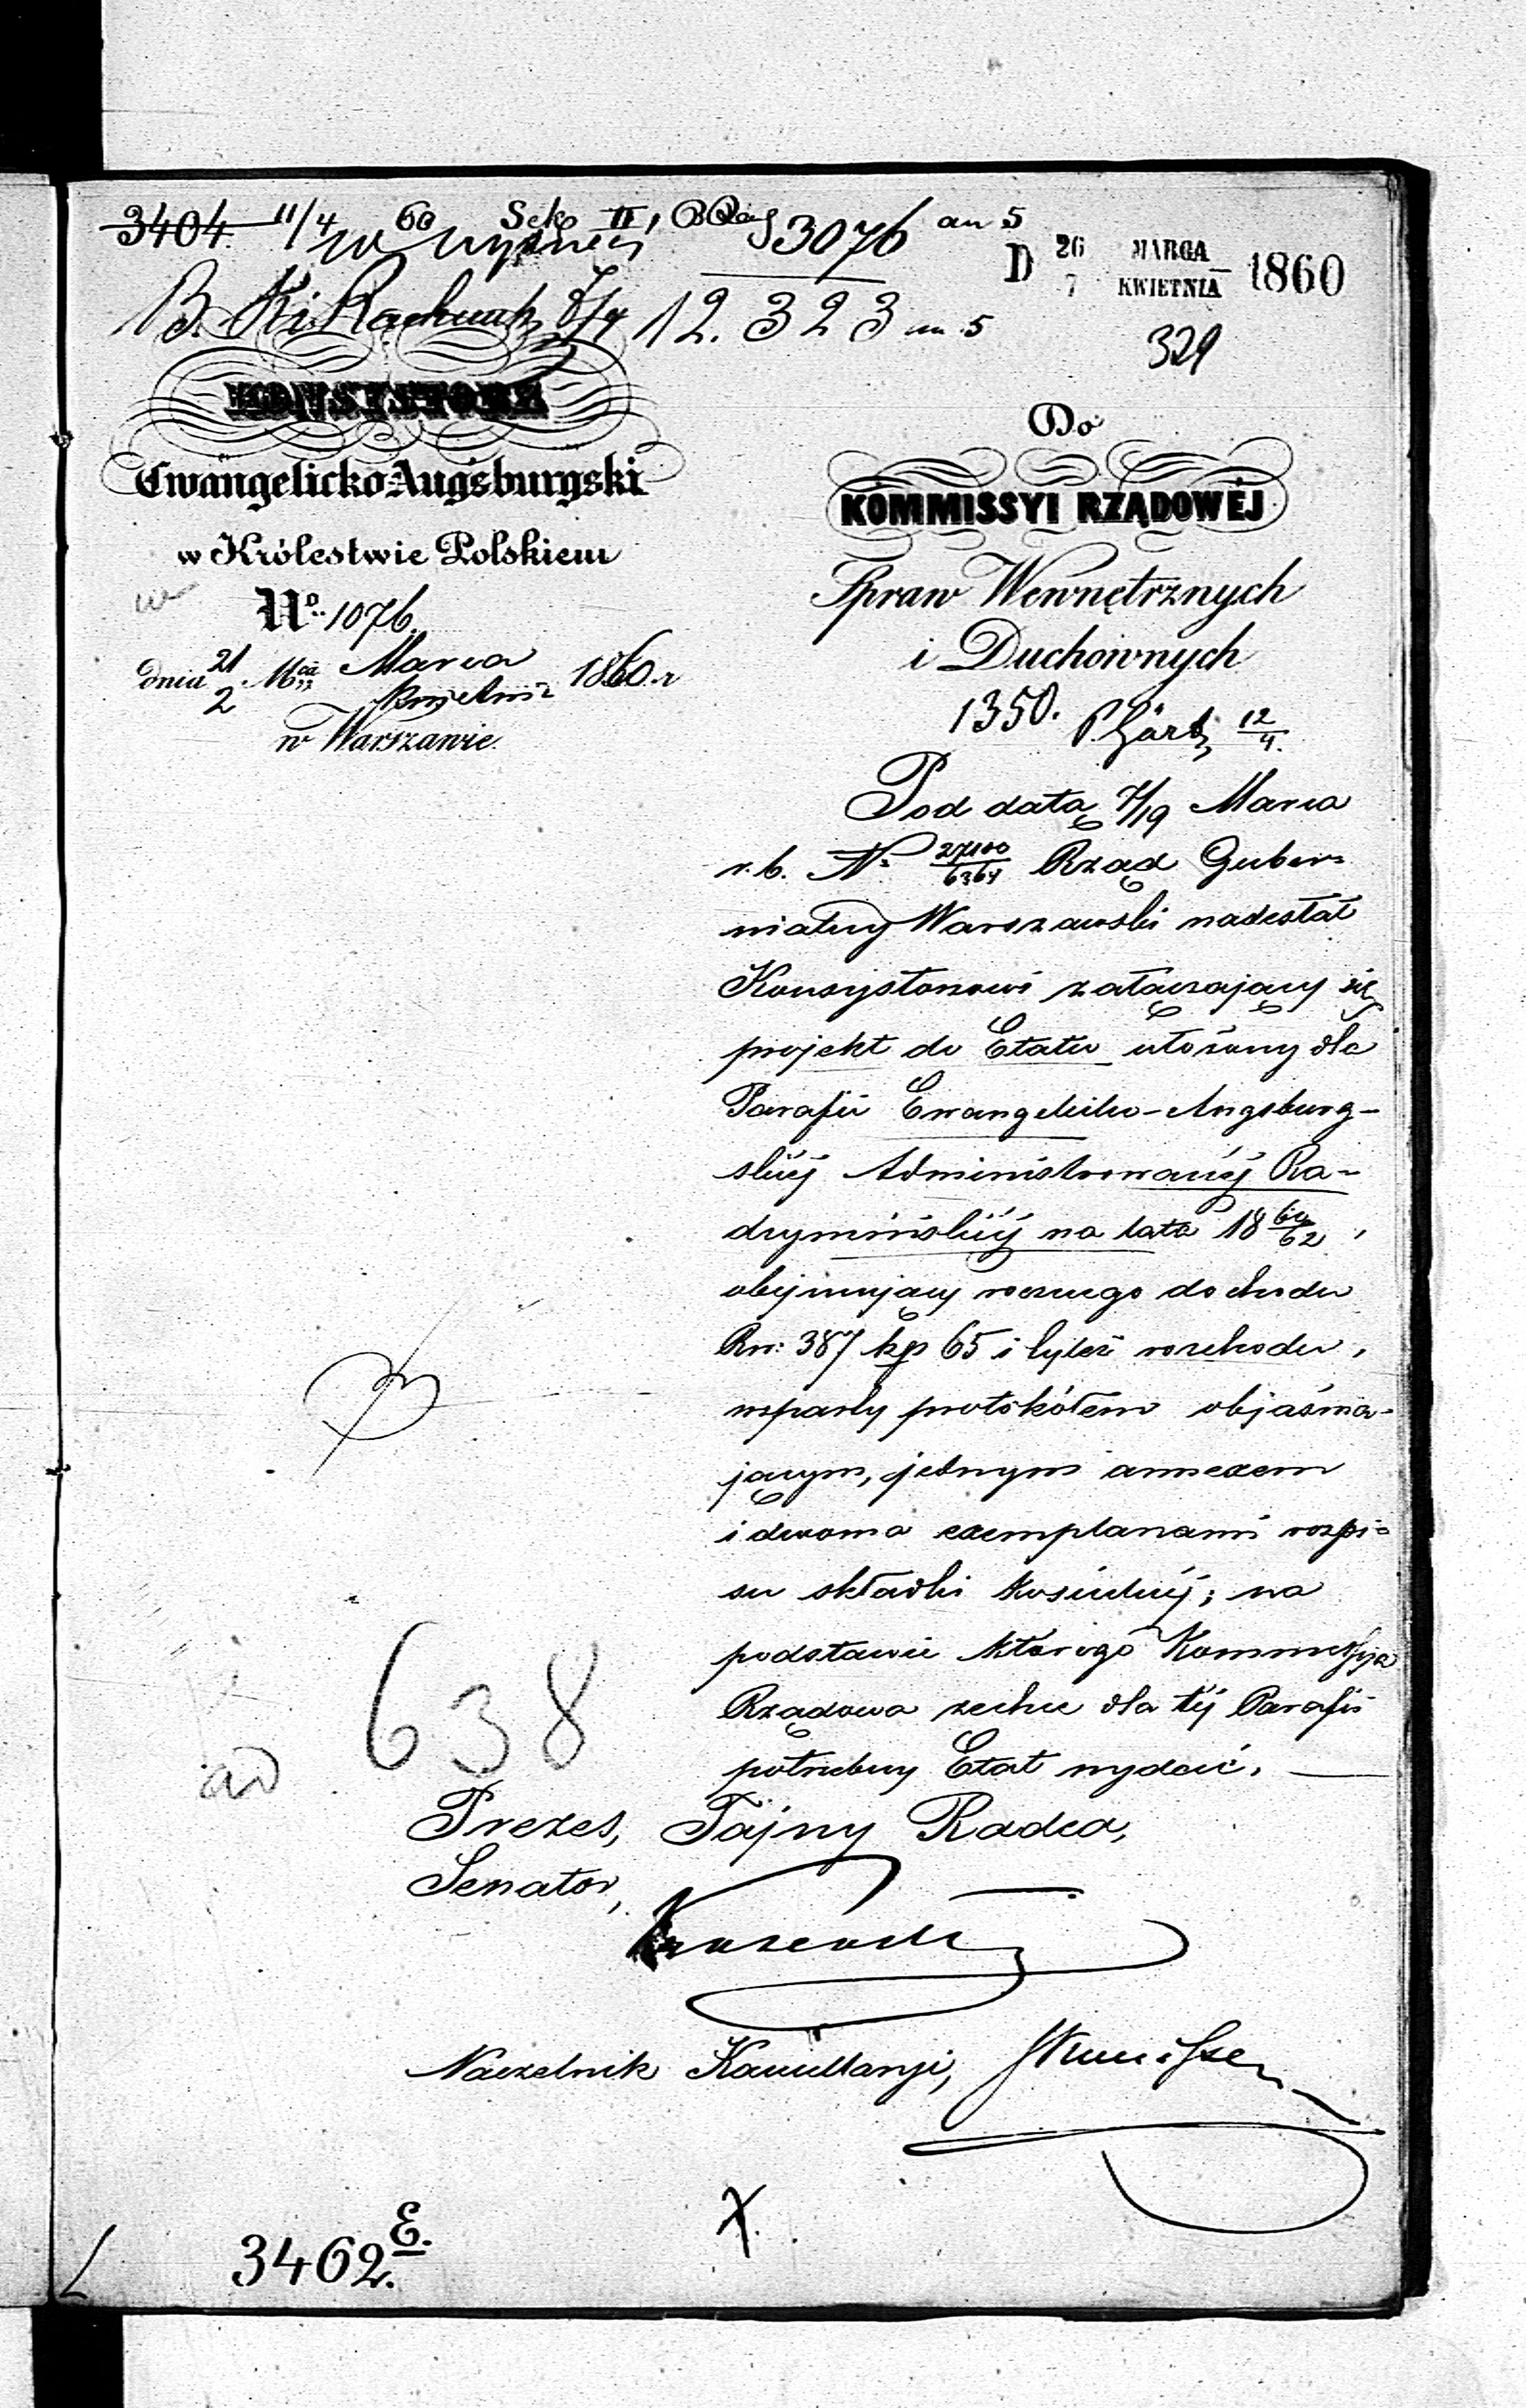 3404. 11/4 60 Sek. II,
3076 an 5
12.323 an 5
D 26 MARCA
7 KWIETNIA 1860
329
KONSYSTORZ
Ewangelicko-Augsburgski
w Królestwie Polskiem
No. 1076.
dnia 21 Mca Marca
2 Kwietnia 1860 r
w Warszawie.
Do
KOMMISSYI RZĄDOWÉJ
Spraw Wewnętrznych
i Duchownych
1350. 12/4.
Pod datą 7/19 Marca
r. b. No 27100/6364 Rząd Guber-
nialny Warszawski nadesłał
Konsystorzowi załączający się
projekt do Etatu ułożony dla
Parafii Ewangelicko-Augsburg-
skiéj Administrowanéj Ra-
dzymińskiéj na lata 18 60/62,
obejmujący rocznego dochodu
Rsr: 387 kp 65 i tyleż rozchodu,
wsparty protokółem objaśnia-
jącym, jednym annexem
i dwoma exemplarzami rozpi-
su składki Kościelnéj; na
podstawie którego Kommissyja
Rządowa zechce dla téj Parafii
potrzebny Etat wydać. —
638
ad
Prezes, Tajny Radca,
Senator,
Naczelnik Kancellaryi,
3462. E.